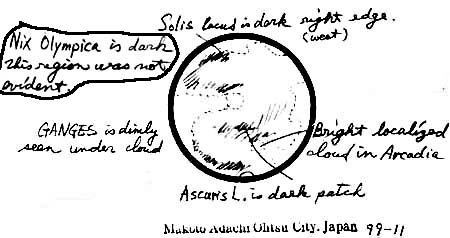 Solis lacus is dark right edge.
(west)
Nix Olympica is dark
this region was not
evident.
GANGES is dimly
seen under cloud
Bright localized
cloud in Arcadia
Ascuris L. is dark patch
Makoto Adachi Ohtsu City, Japan 99-11